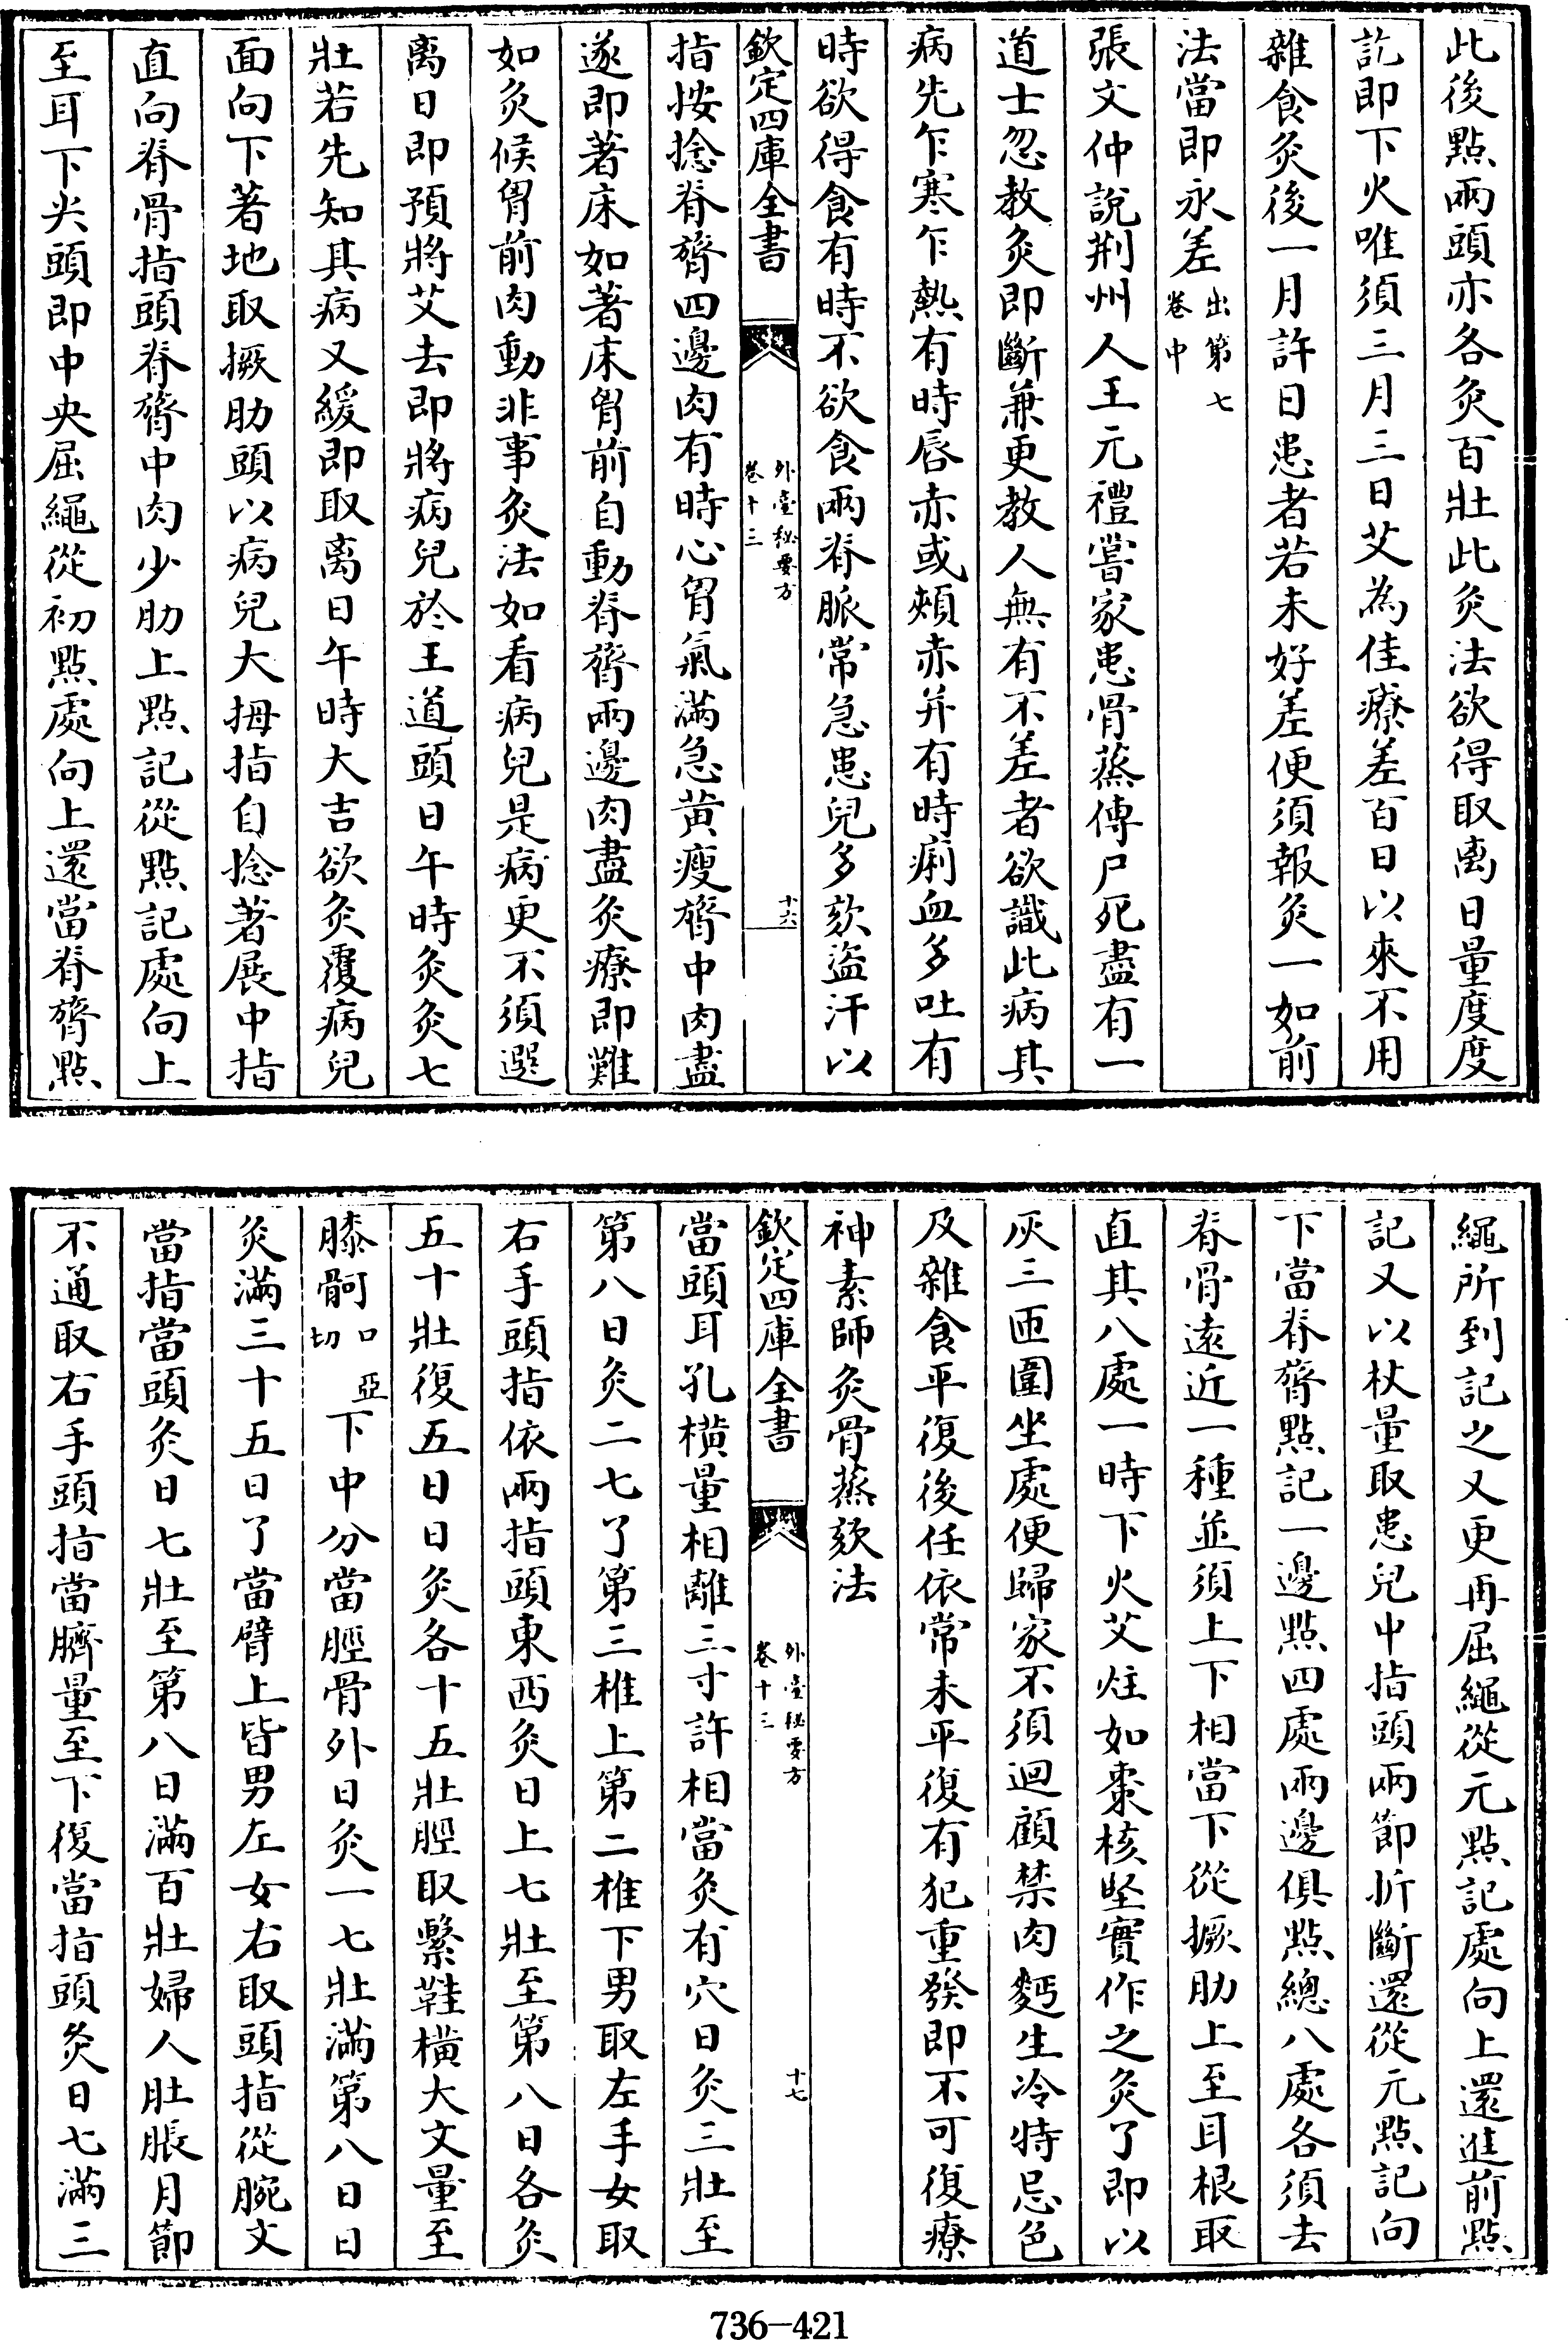 此後點兩頭亦各灸百壯此灸法欲得取离日量度度
訖即下火唯須三月三日艾為佳療差百日以來不用
雜食灸後一月許日患者若未好差便須報灸一如前
法當即永差出第七卷中
張文仲說荆州人王元禮嘗家患骨蒸傳尸死盡有一
道士忽教灸即斷兼更教人無有不差者欲識此病其
病先乍寒乍熱有時唇赤或頰赤并有時痢血多吐有
時欲得食有時不欲食兩脊脈常急患兒多欬盜汗以
欽定四庫全書 外臺秘要方卷十三 十六
指按捻脊膂四邊肉有時心胷氣滿急黃瘦膂中肉盡
遂即著床如著床胷前自動脊膂兩邊肉盡灸療即難
如灸候胷前肉動非事灸法如看病兒是病更不須選
离日即預將艾去即將病兒於王道頭日午時灸灸七
壯若先知其病又緩即取离日午時大吉欲灸覆病兒
面向下著地取撅肋頭以病兒大拇指自捻著展中指
直向脊骨指頭脊膂中肉少肋上點記從點記處向上
至耳下尖頭即中央屈繩從初點處向上還當脊膂點
繩所到記之又更再屈繩從元點記處向上還進前點
記又以杖量取患兒中指頭兩節折斷還從元點記向
下當脊膂點記一邊點四處兩邊俱點總八處各須去
脊骨遠近一種並須上下相當下從撅肋上至耳根取
直其八處一時下火艾炷如棗核堅實作之灸了即以
灰三匝圍坐處便歸家不須迴顧禁肉麪生冷特忌色
及雜食平復後任依常未平復有犯重發即不可復療
神素師灸骨蒸欬法
欽定四庫全書 外臺秘要方卷十三 十七
當頭耳孔橫量相離三寸許相當灸有穴日灸三壯至
第八日灸二七了第三椎上第二椎下男取左手女取
右手頭指依兩指頭東西灸日上七壯至第八日各灸
五十壯復五日日灸各十五壯脛取繫鞋橫大文量至
膝骭口亞切下中分當脛骨外日灸一七壯滿第八日日
灸滿三十五日了當臂上皆男左女右取頭指從腕文
當指當頭灸日七壯至第八日滿百壯婦人肚脹月節
不通取右手頭指當臍量至下復當指頭灸日七滿三
736-421